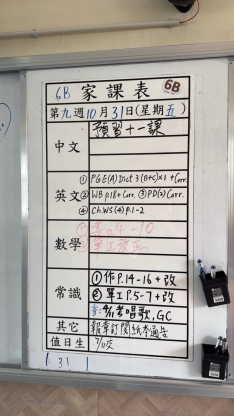 6B 家課表 6B
第九週10月31日(星期五)
中文 預習十一課
① P.G.E(A) Dict 3 (B+C)x1 + Corr.
英文 ② WB p.18 + Corr. ③ PD(2) Corr.
④ Ch.WS(4) P.1-2
數學
常識 ① 作P.14-16+改
② 單工P.5-7+改
音: 4/11考唱歌, GC
其它 報章訂閱紙本通告
值日生 7/11交